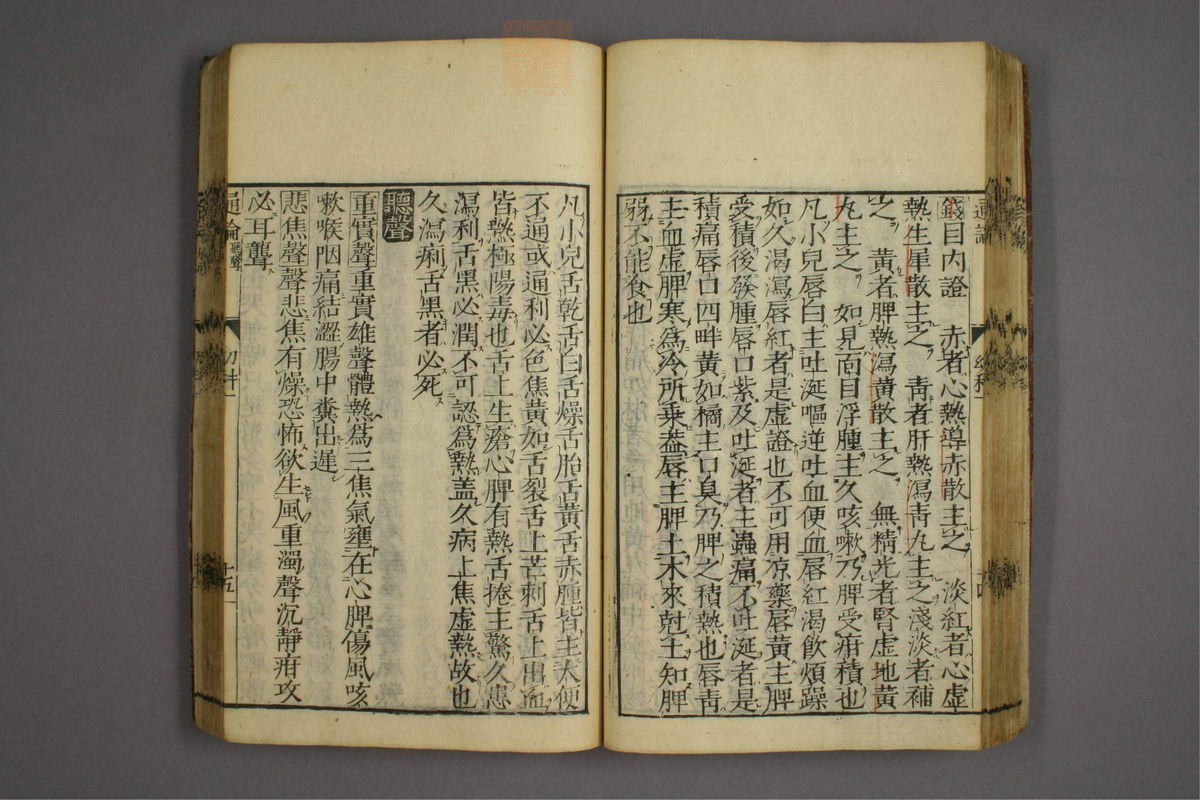 錢目內證　赤者心熱導赤散主之　淡紅者心虛
熱生犀散主之　靑者肝熱瀉靑丸主之淺淡者補
之　黃者脾熱瀉黃散主之　無精光者腎虛地黃
丸主之　如見面目浮腫主久咳嗽乃脾受疳積也
凡小兒唇白主吐涎嘔逆吐血便血唇紅渴飮煩躁
如久渴瀉唇紅者是虛證也不可用凉藥唇黃主脾
受積後發腫唇口紫及吐涎者主蟲痛不吐涎者是
積痛唇口四畔黃如橘主口臭乃脾之積熱也唇靑
主血虛脾寒爲冷所乗葢唇主脾土木來尅土知脾
弱不能食也
凡小兒舌乾舌白舌燥舌胎舌黃舌赤腫皆主大便
不通或通利必色焦黃如舌裂舌上芒刺舌上出血
皆熱極陽毒也舌上生瘡心脾有熱舌捲主驚久患
瀉利舌黑必潤不可認爲熱盖久病上焦虛熱故也
久瀉痢舌黑者必死
聽聲
重實聲重實雄聲體熱爲三焦氣壅在心脾傷風咳
嗽喉咽痛結澀腸中糞出遲
悲焦聲聲悲焦有燥恐怖欲生風重濁聲沉靜疳攻
必耳聾
通論 聽聲
十五